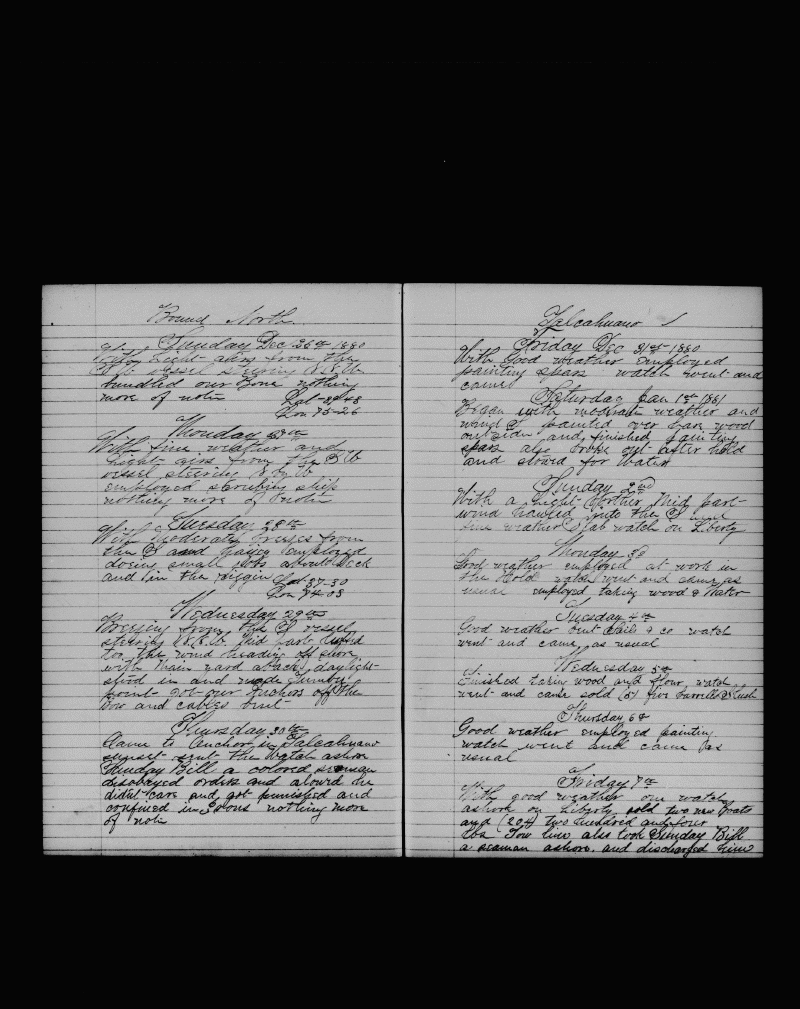 Bound North
Sunday Dec 26th 1880
With light airs from the
S.W. vessel steering N.N.W.
bundled our bone nothing
more of note Lat 39-48
Lon 75-26
Monday 27th
With fine weather and
light airs from the S W
vessel steering N by W
employed scrubing ship
nothing more of note
Tuesday 28th
With moderate breezes from
the S and haizy employed
doeing small jobs about deck
and in the riggin Lat 37-30
Lon 74-03
Wednesday 29th
Breezing from the S vessel
steering N.N.W. Mid part luffed
to the wind heading off shore
with main yard aback daylight
stood in and made
point got our anchors off the
bow and cables bent
Thursday 30th
Came to Anchor in Talcahuano
sunset sent the watch ashore
Sunday Bill a colored seaman
disobeyed orders and alowd he
didnt care and got punished and
confined in irons nothing more
of note
Talcahuano 1
Friday Dec 31st 1880
With Good weather employed
painting spars watch went and
came
Saturday Jan 1st 1881
Began with moderate weather and
wind S painted over bare wood
outside and finished painting
spars also broke out after hold
and stowd for water
Sunday 2nd
With a light Norther Mid part
wind hawled into the S and
fine weather Stab watch on Liberty
Monday 3d
Good weather employed at work in
the Hold watch went and came as
usual employed taking wood & Water
Tuesday 4th
Good weather bent sails & co watch
went and came as usual
Wednesday 5th
Finished taking wood and flour watch
went and came sold (5) five barrells Slush
Thursday 6th
Good weather employed painting
watch went and came as
usual
Friday 7th
With good weather one watch
ashore on liberty sold two new boats
and (204) two hundred and four
lbs Tow line also took Sunday Bill
a seaman ashore and discharged him